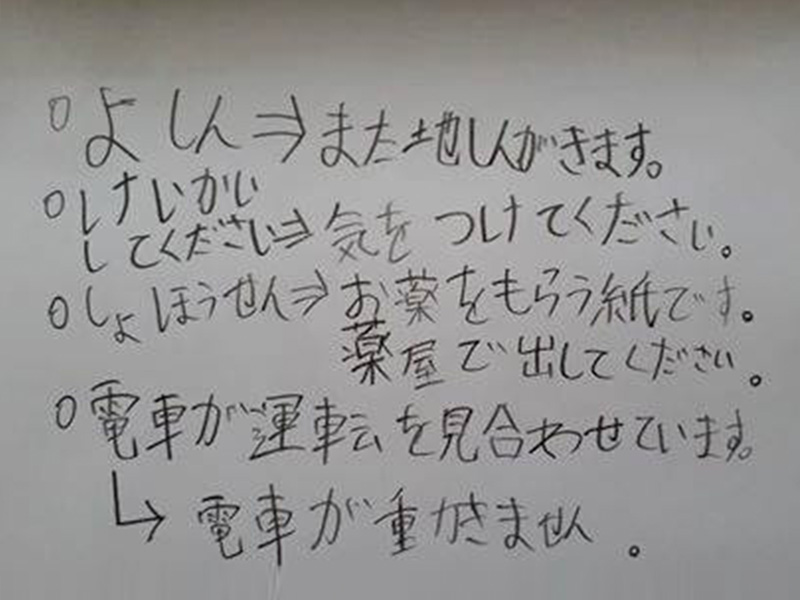 ○よしん⇒また地しんがきます。
○けいかい
してください⇒気をつけてください。
○しょほうせん⇒お薬をもらう紙です。
薬屋で出してください。
○電車が運転を見合わせています。
↳電車が重かきません。